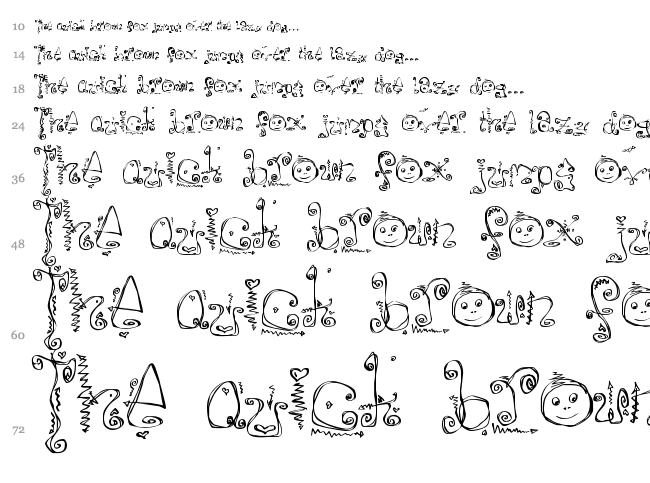 10 The quick brown fox jumps over the lazy dog...
14 The quick brown fox jumps over the lazy dog...
18 The quick brown fox jumps over the lazy dog...
24 The quick brown fox jumps over the lazy dog
36 The quick brown fox jumps ove
48 The quick brown fox ju
60 The quick brown fo
72 The quick brown